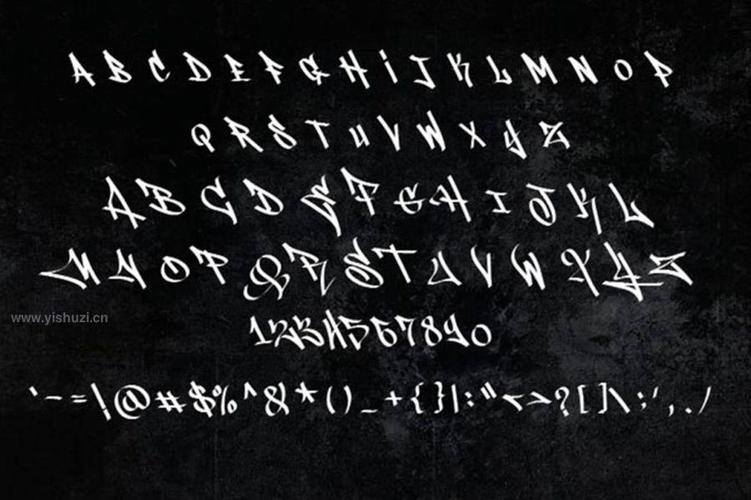 A B C D E F G H i J K L M N O P
Q R S T U V W X Y Z
A B C D E F G H I J K L
M N O P Q R S T U V W X Y Z
www.yishuzi.cn
1234567890
`-=!@#$%^&*()_+{}|:"<>?[]\;',./